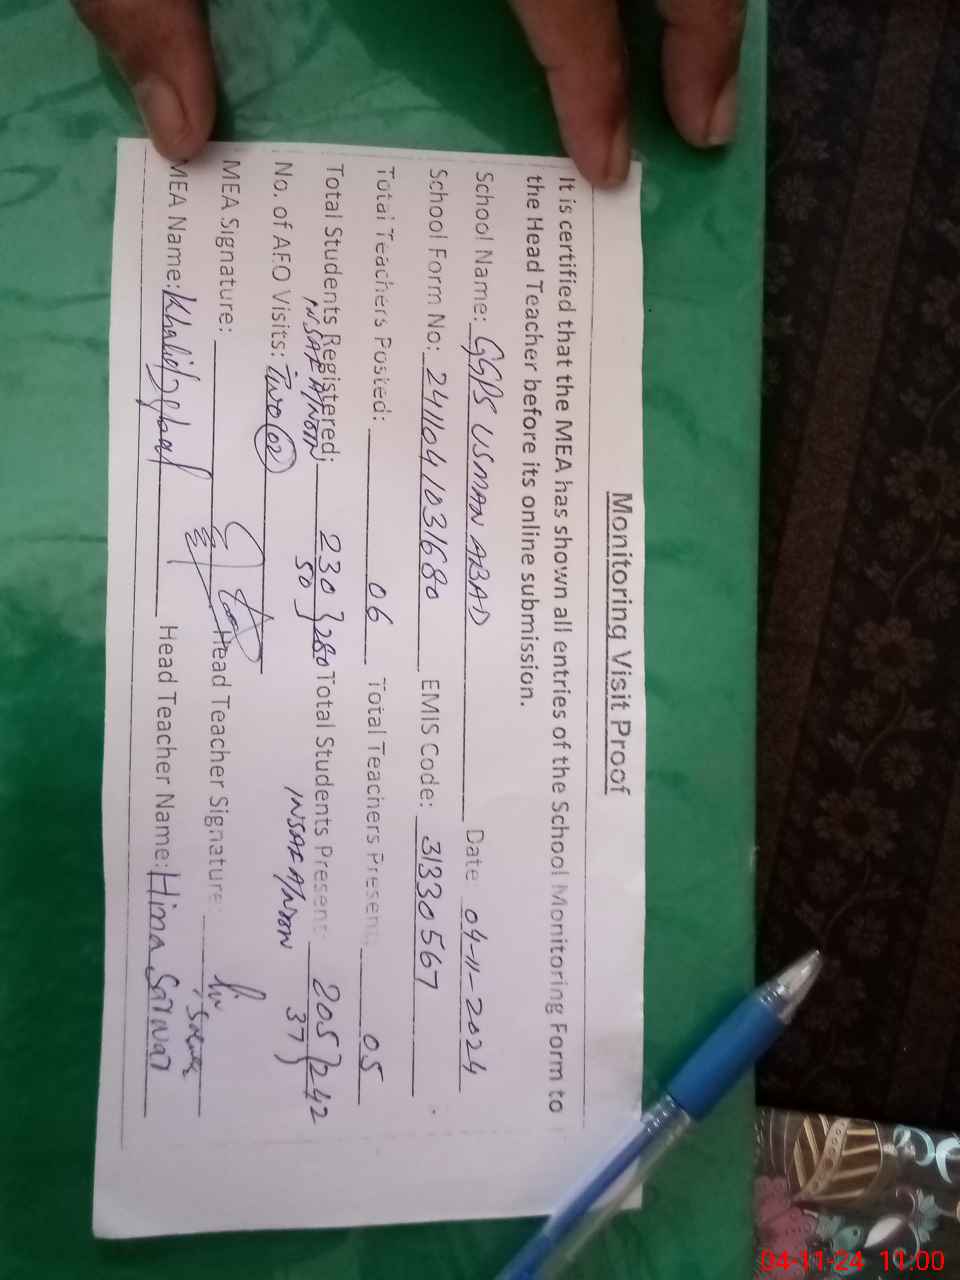 Monitoring Visit Proof
It is certified that the MEA has shown all entries of the School Monitoring Form to
the Head Teacher before its online submission.
School Name: GGPS USMAN ABAD Date: 04-11-2024
School Form No: 241104/031680 EMIS Code: 31330567
Total Teachers Posted: 06 Total Teachers Present: 05
Total Students Registered: 230 } 280 Total Students Present: 205 } 242
INSAF A/NOON 50 INSAF A/NOON 37
No. of AEO Visits: Two 02
MEA Signature: Head Teacher Signature:
MEA Name: Khalid Iqbal Head Teacher Name: Hima Sarwar
04-11-24 11:00